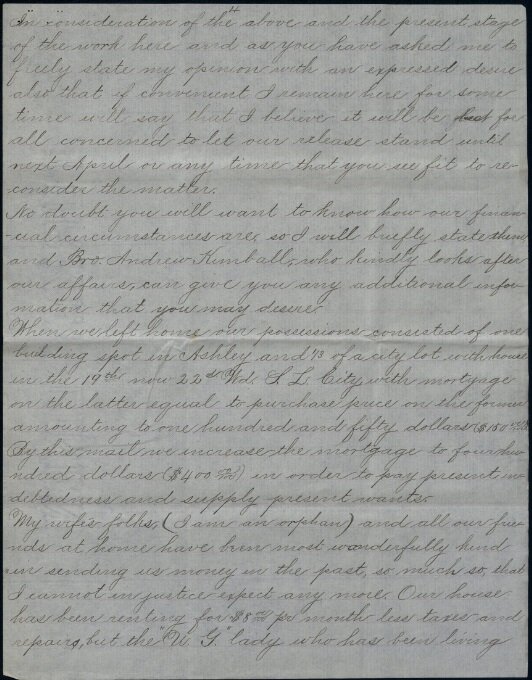 In consideration of the above and the present stage
of the work here and as you have asked me to
freely state my opinion with an expressed desire
also that if convenient I remain here for some
time will say that I believe it will be best for
all concerned to let our release stand until
next April or any time that you see fit to re-
consider the matter.
No doubt you will want to know how our finan-
-cial circumstances are, so I will briefly state them
and Bro. Andrew Kimball, who kindly looks after
our affairs, can give you any additional infor-
mation that you may desire
When we left home our possessions consisted of one
building spot in Ashley and 1/3 of a city lot with house
in the 19th now 22nd Wd. S. L. City, with mortgage
on the latter equal to purchase price on the former
amounting to one hundred and fifty dollars ($150
By this mail we increase the mortgage to four hu-
ndred dollars ($400 ) in order to pay present in-
debtedness and supply present wants.
My wife's folks, (I am an orphan) and all our frie-
nds at home have been most wonderfully kind
in sending us money in the past, so much so, that
I cannot in justice expect any more. Our house
has been renting for $8 pr month less taxes and
repairs, but the "U. G." lady who has been living